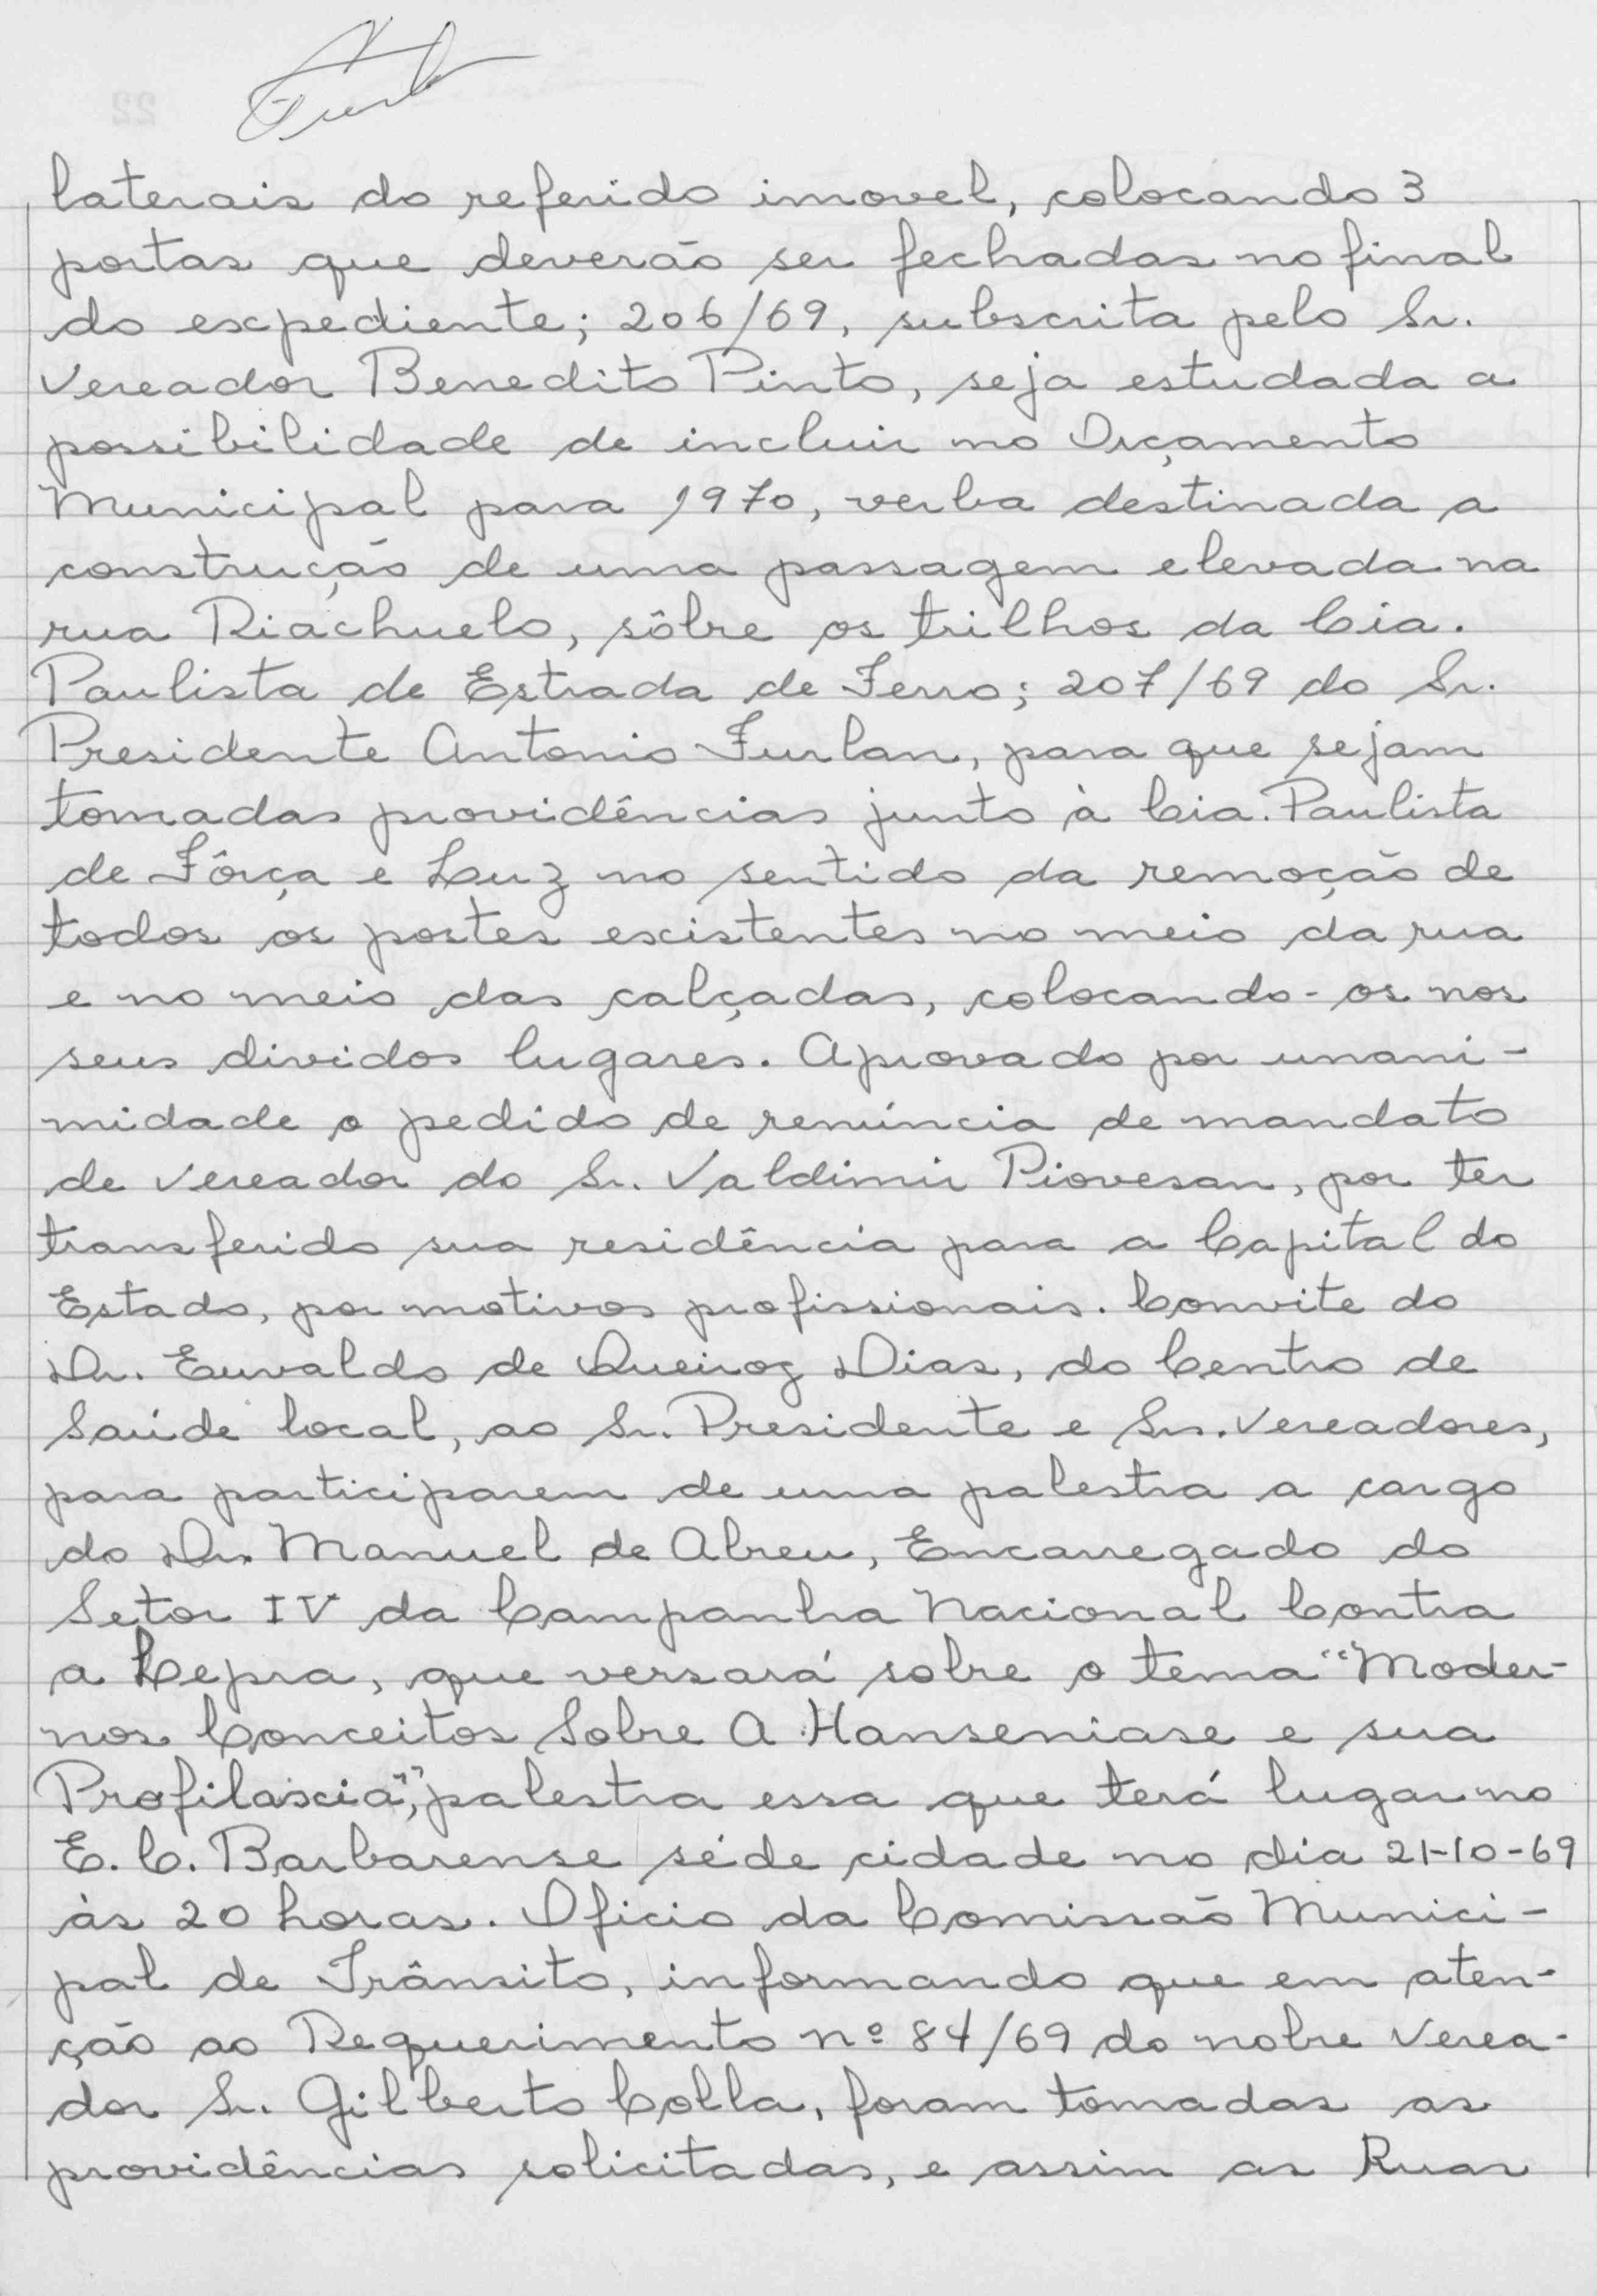 laterais do referido imovel, colocando 3
portas que deverão ser fechadas no final
do expediente; 206/69, subscrita pelo Sr.
Vereador Benedito Pinto, seja estudada a
possibilidade de incluir no Orçamento
Municipal para 1970, verba destinada a
construção de uma passagem elevada na
rua Riachuelo, sôbre os trilhos da Cia.
Paulista de Estrada de Ferro; 207/69 do Sr.
Presidente Antonio Furlan, para que sejam
tomadas providências junto à Cia. Paulista
de Fôrça e Luz no sentido da remoção de
todos os postes existentes no meio da rua
e no meio das calçadas, colocando-os nos
seus dividos lugares. Aprovado por unani-
midade o pedido de renúncia de mandato
de Vereador do Sr. Valdimir Piovesan, por ter
transferido sua residência para a Capital do
Estado, por motivos profissionais. Convite do
Dr. Euvaldo de Queiroz Dias, do Centro de
Saúde local, ao Sr. Presidente e Srs. Vereadores,
para participarem de uma palestra a cargo
do Dr. Manuel de Abreu, Encarregado do
Setor IV da Campanha Nacional Contra
a Lepra, que versará sobre o tema "Moder-
nos Conceitos Sobre A Hanseniase e sua
Profilaxia", palestra essa que terá lugar no
E. C. Barbarense séde cidade no dia 21-10-69
às 20 horas. Oficio da Comissão Munici-
pal de Trânsito, informando que em aten-
ção ao Requerimento nº 84/69 do nobre Verea-
dor Sr. Gilberto Colla, foram tomadas as
providências solicitadas, e assim as Ruas